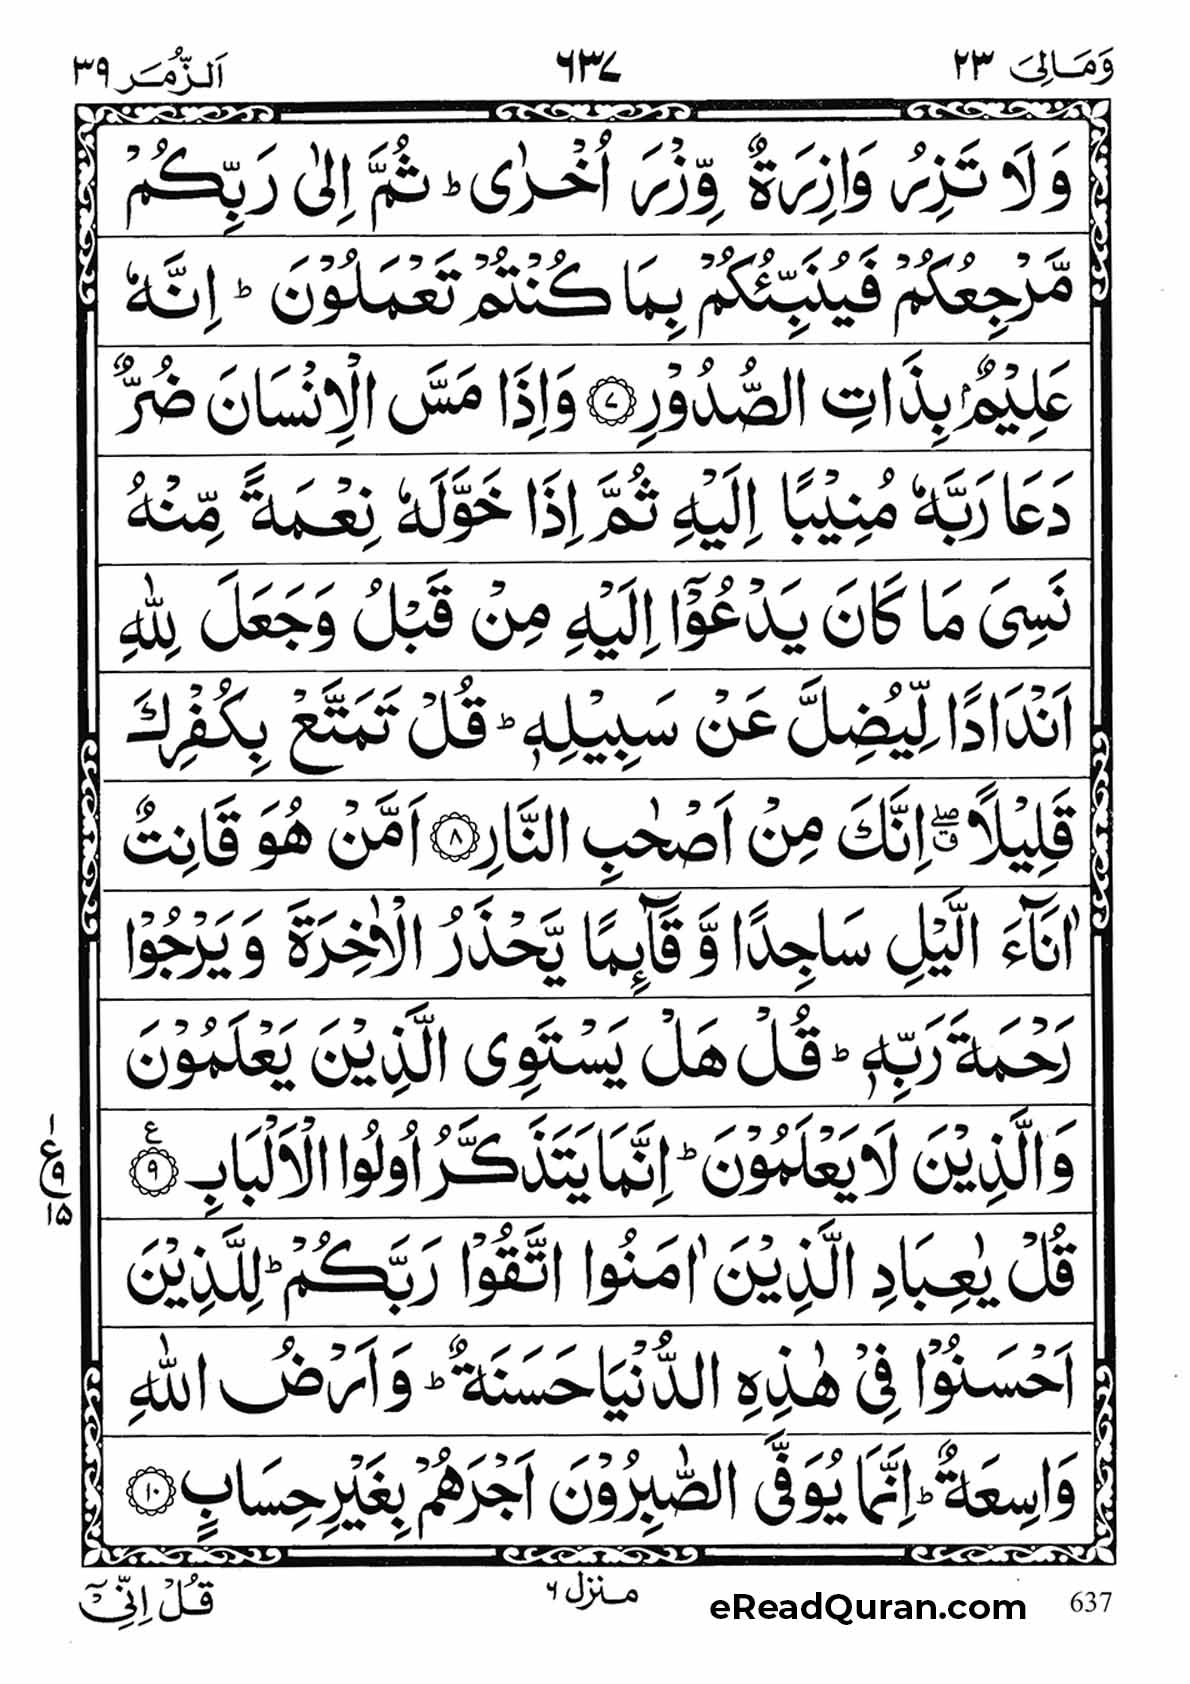 وَمَالِیَ ٢٣ ٦٣٧ اَلزُّمَر ٣٩
وَلَا تَزِرُ وَازِرَةٌ وِّزْرَ اُخْرٰى ؕ ثُمَّ اِلٰى رَبِّكُمْ
مَّرْجِعُكُمْ فَيُنَبِّئُكُمْ بِمَا كُنْتُمْ تَعْمَلُوْنَ ؕ اِنَّهٗ
عَلِيْمٌۢ بِذَاتِ الصُّدُوْرِ ﴿٧﴾ وَاِذَا مَسَّ الْاِنْسَانَ ضُرٌّ
دَعَا رَبَّهٗ مُنِيْبًا اِلَيْهِ ثُمَّ اِذَا خَوَّلَهٗ نِعْمَةً مِّنْهُ
نَسِىَ مَا كَانَ يَدْعُوْۤا اِلَيْهِ مِنْ قَبْلُ وَجَعَلَ لِلّٰهِ
اَنْدَادًا لِّيُضِلَّ عَنْ سَبِيْلِهٖ ؕ قُلْ تَمَتَّعْ بِكُفْرِكَ
قَلِيْلًا ۖۗ اِنَّكَ مِنْ اَصْحٰبِ النَّارِ ﴿٨﴾ اَمَّنْ هُوَ قَانِتٌ
اٰنَآءَ الَّيْلِ سَاجِدًا وَّ قَآٮِٕمًا يَّحْذَرُ الْاٰخِرَةَ وَيَرْجُوْا
رَحْمَةَ رَبِّهٖ ؕ قُلْ هَلْ يَسْتَوِى الَّذِيْنَ يَعْلَمُوْنَ
وَالَّذِيْنَ لَا يَعْلَمُوْنَ ؕ اِنَّمَا يَتَذَكَّرُ اُولُوا الْاَلْبَابِ ﴿٩﴾ ع
١ ع ٩ ١٥
قُلْ يٰعِبَادِ الَّذِيْنَ اٰمَنُوا اتَّقُوْا رَبَّكُمْ ؕ لِلَّذِيْنَ
اَحْسَنُوْا فِىْ هٰذِهِ الدُّنْيَا حَسَنَةٌ ؕ وَاَرْضُ اللّٰهِ
وَاسِعَةٌ ؕ اِنَّمَا يُوَفَّى الصّٰبِرُوْنَ اَجْرَهُمْ بِغَيْرِ حِسَابٍ ﴿١٠﴾
637 eReadQuran.com منزل ٦ قُلْ اِنِّىْۤ